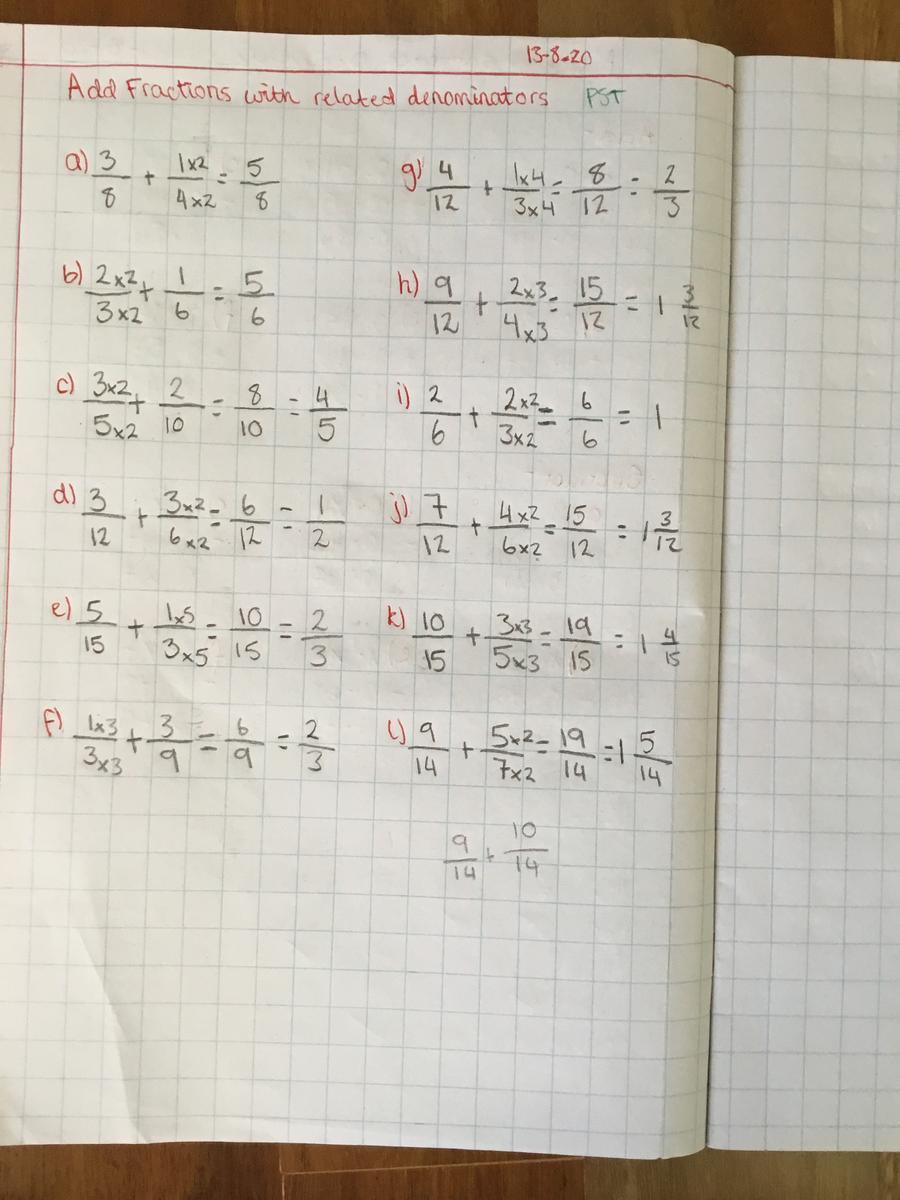 13-8-20
Add Fractions with related denominators PST
a) 3/8 + 1x2/4x2 = 5/8
b) 2x2/3x2 + 1/6 = 5/6
c) 3x2/5x2 + 2/10 = 8/10 = 4/5
d) 3/12 + 3x2/6x2 = 6/12 = 1/2
e) 5/15 + 1x5/3x5 = 10/15 = 2/3
f) 1x3/3x3 + 3/9 = 6/9 = 2/3
g) 4/12 + 1x4/3x4 = 8/12 = 2/3
h) 9/12 + 2x3/4x3 = 15/12 = 1 3/12
i) 2/6 + 2x2/3x2 = 6/6 = 1
j) 7/12 + 4x2/6x2 = 15/12 = 1 3/12
k) 10/15 + 3x3/5x3 = 19/15 = 1 4/15
l) 9/14 + 5x2/7x2 = 19/14 = 1 5/14
9/14 + 10/14